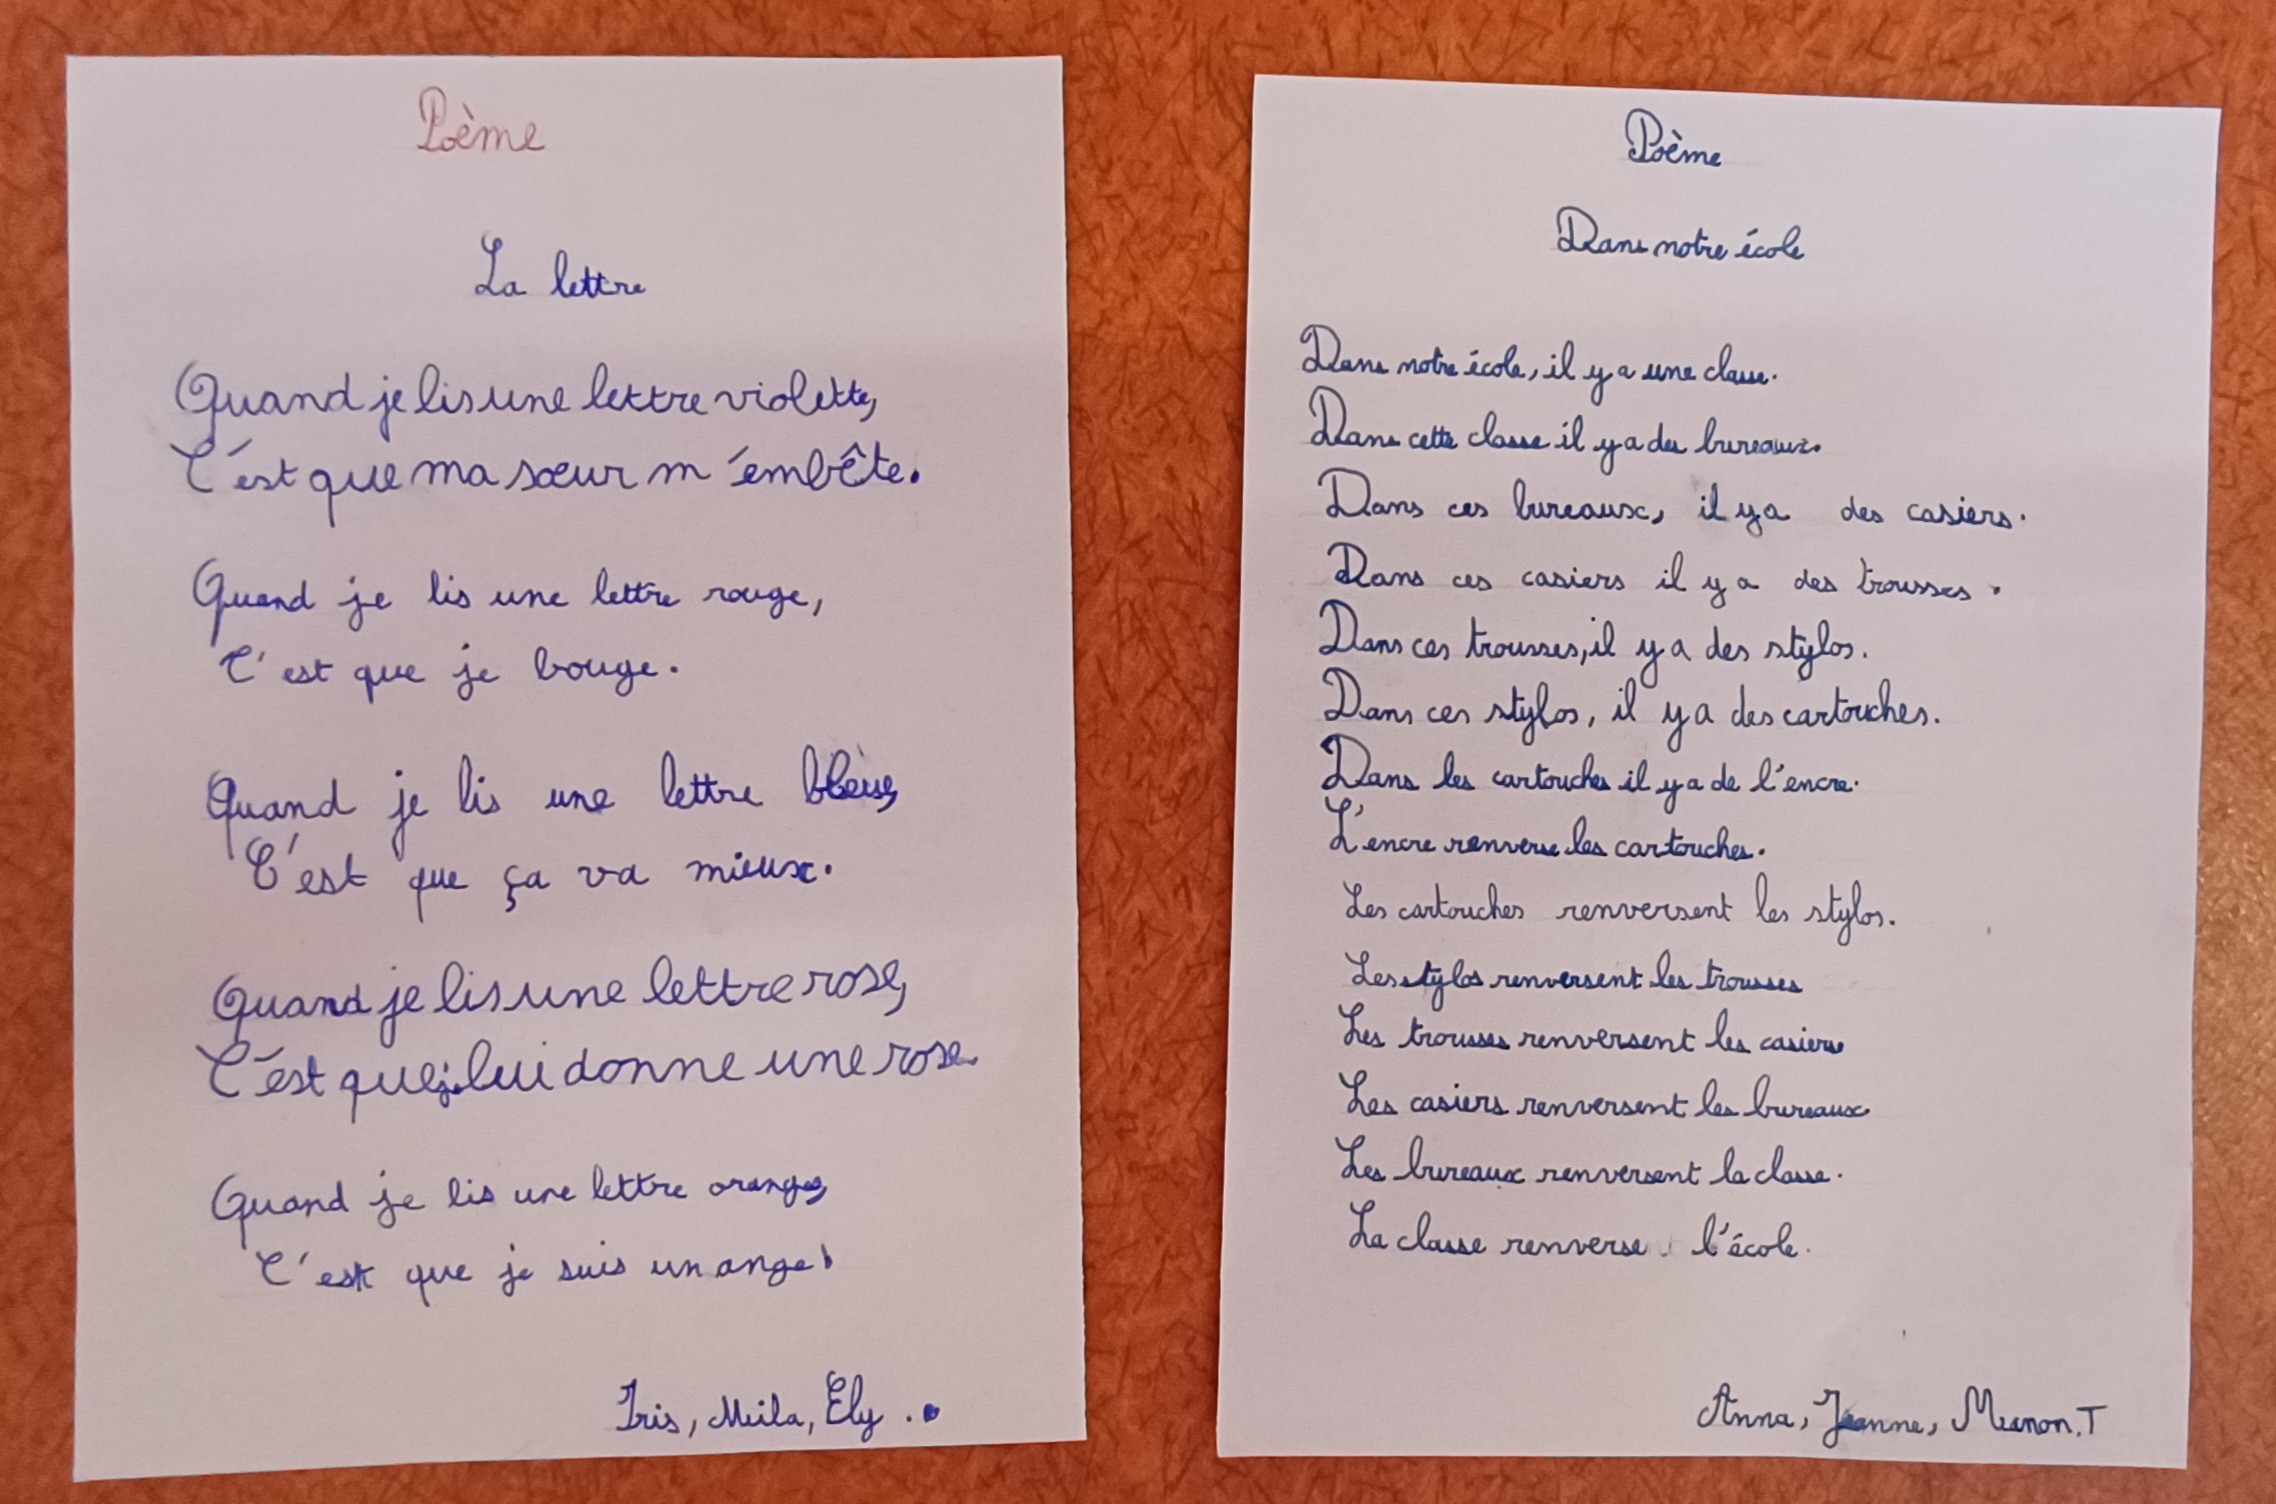 Poème
La lettre
Quand je lis une lettre violette,
C'est que ma sœur m'embête.
Quand je lis une lettre rouge,
C'est que je bouge.
Quand je lis une lettre bleue,
C'est que ça va mieux.
Quand je lis une lettre rose,
C'est que je lui donne une rose.
Quand je lis une lettre orange,
C'est que je suis un ange!
Iris, Mila, Ely.
Poème
Dans notre école
Dans notre école, il y a une classe.
Dans cette classe il y a des bureaux.
Dans ces bureaux, il y a des casiers.
Dans ces casiers il y a des trousses.
Dans ces trousses, il y a des stylos.
Dans ces stylos, il y a des cartouches.
Dans les cartouches il y a de l'encre.
L'encre renverse les cartouches.
Les cartouches renversent les stylos.
Les stylos renversent les trousses
Les trousses renversent les casiers
Les casiers renversent les bureaux
Les bureaux renversent la classe.
La classe renverse l'école.
Anna, Jeanne, Manon.T